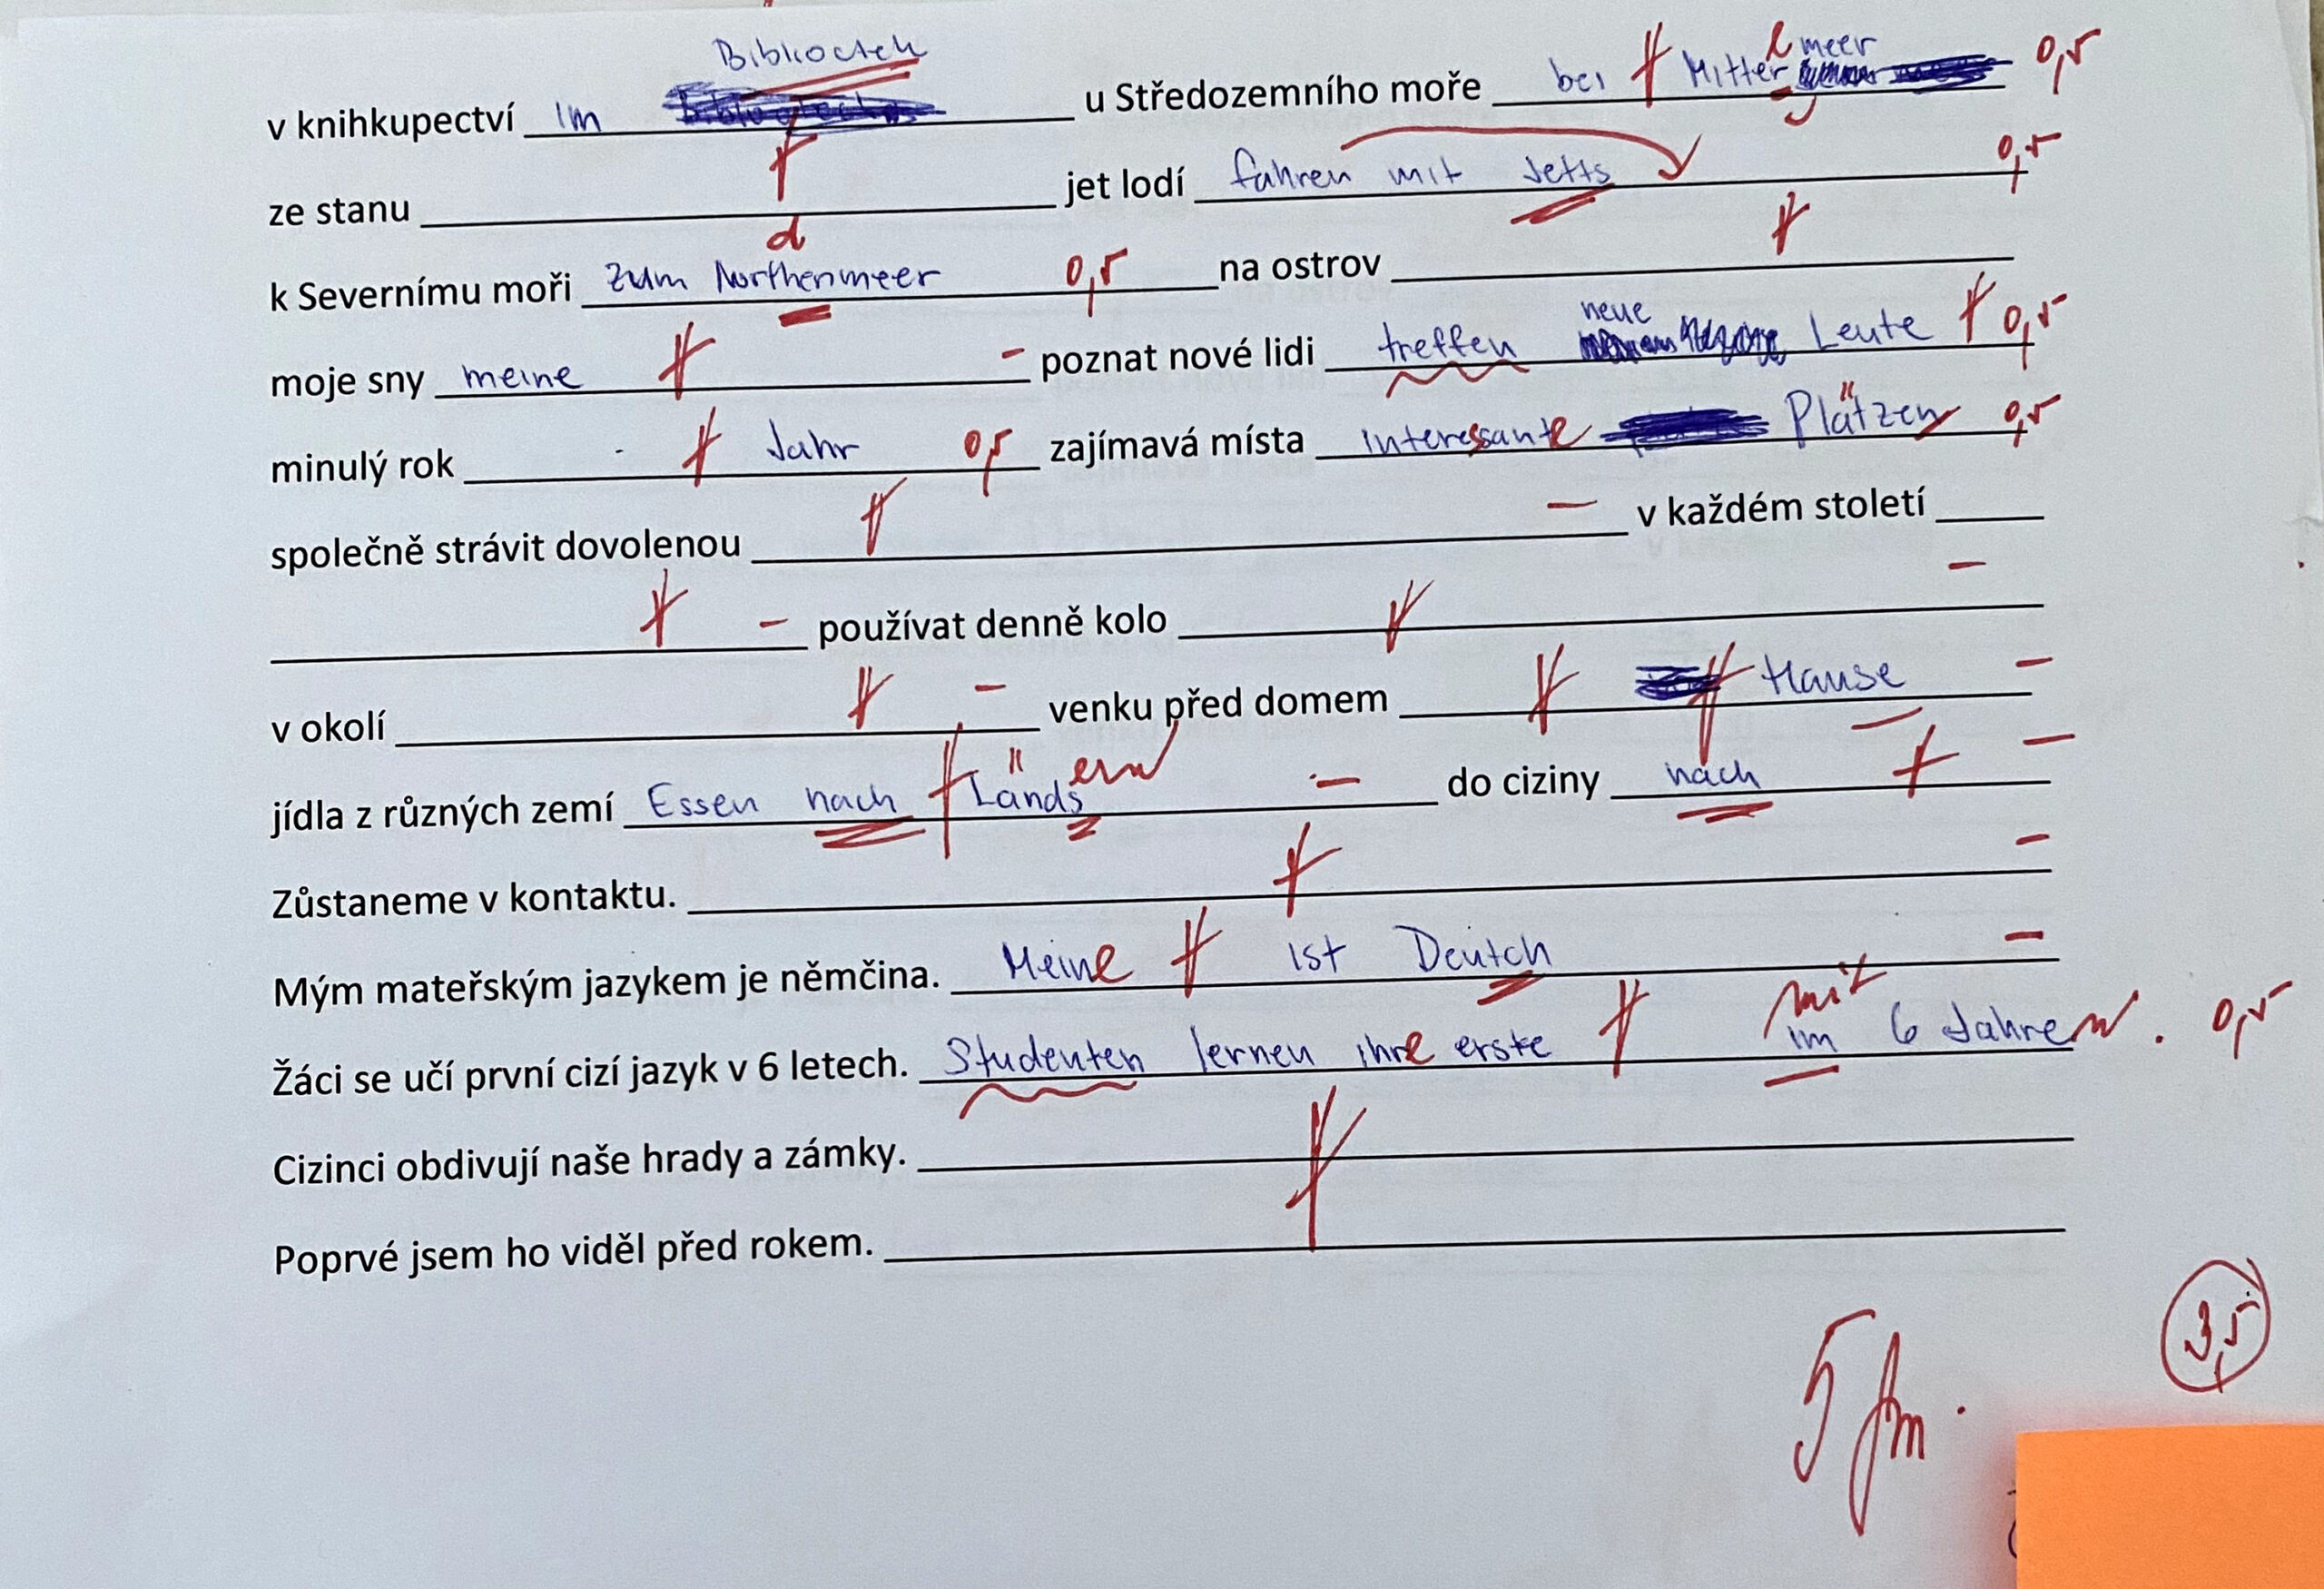 Bibliocteh meer
v knihkupectví im u Středozemního moře bei Mitter l 0,5
ze stanu jet lodí fahren mit Jetts 0,5
d
k Severnímu moři zum Northenmeer 0,5 na ostrov
neue
moje sny meine - poznat nové lidi treffen Leute 0,5
minulý rok Jahr 0,5 zajímavá místa interessante Plätzen 0,5
společně strávit dovolenou - v každém století
- používat denně kolo -
v okolí - venku před domem Hause -
ern
jídla z různých zemí Essen nach Länds - do ciziny nach -
Zůstaneme v kontaktu. -
Mým mateřským jazykem je němčina. Meine ist Deutch -
mit
Žáci se učí první cizí jazyk v 6 letech. Studenten lernen ihre erste im 6 Jahren. 0,5
Cizinci obdivují naše hrady a zámky.
Poprvé jsem ho viděl před rokem.
3,5
5